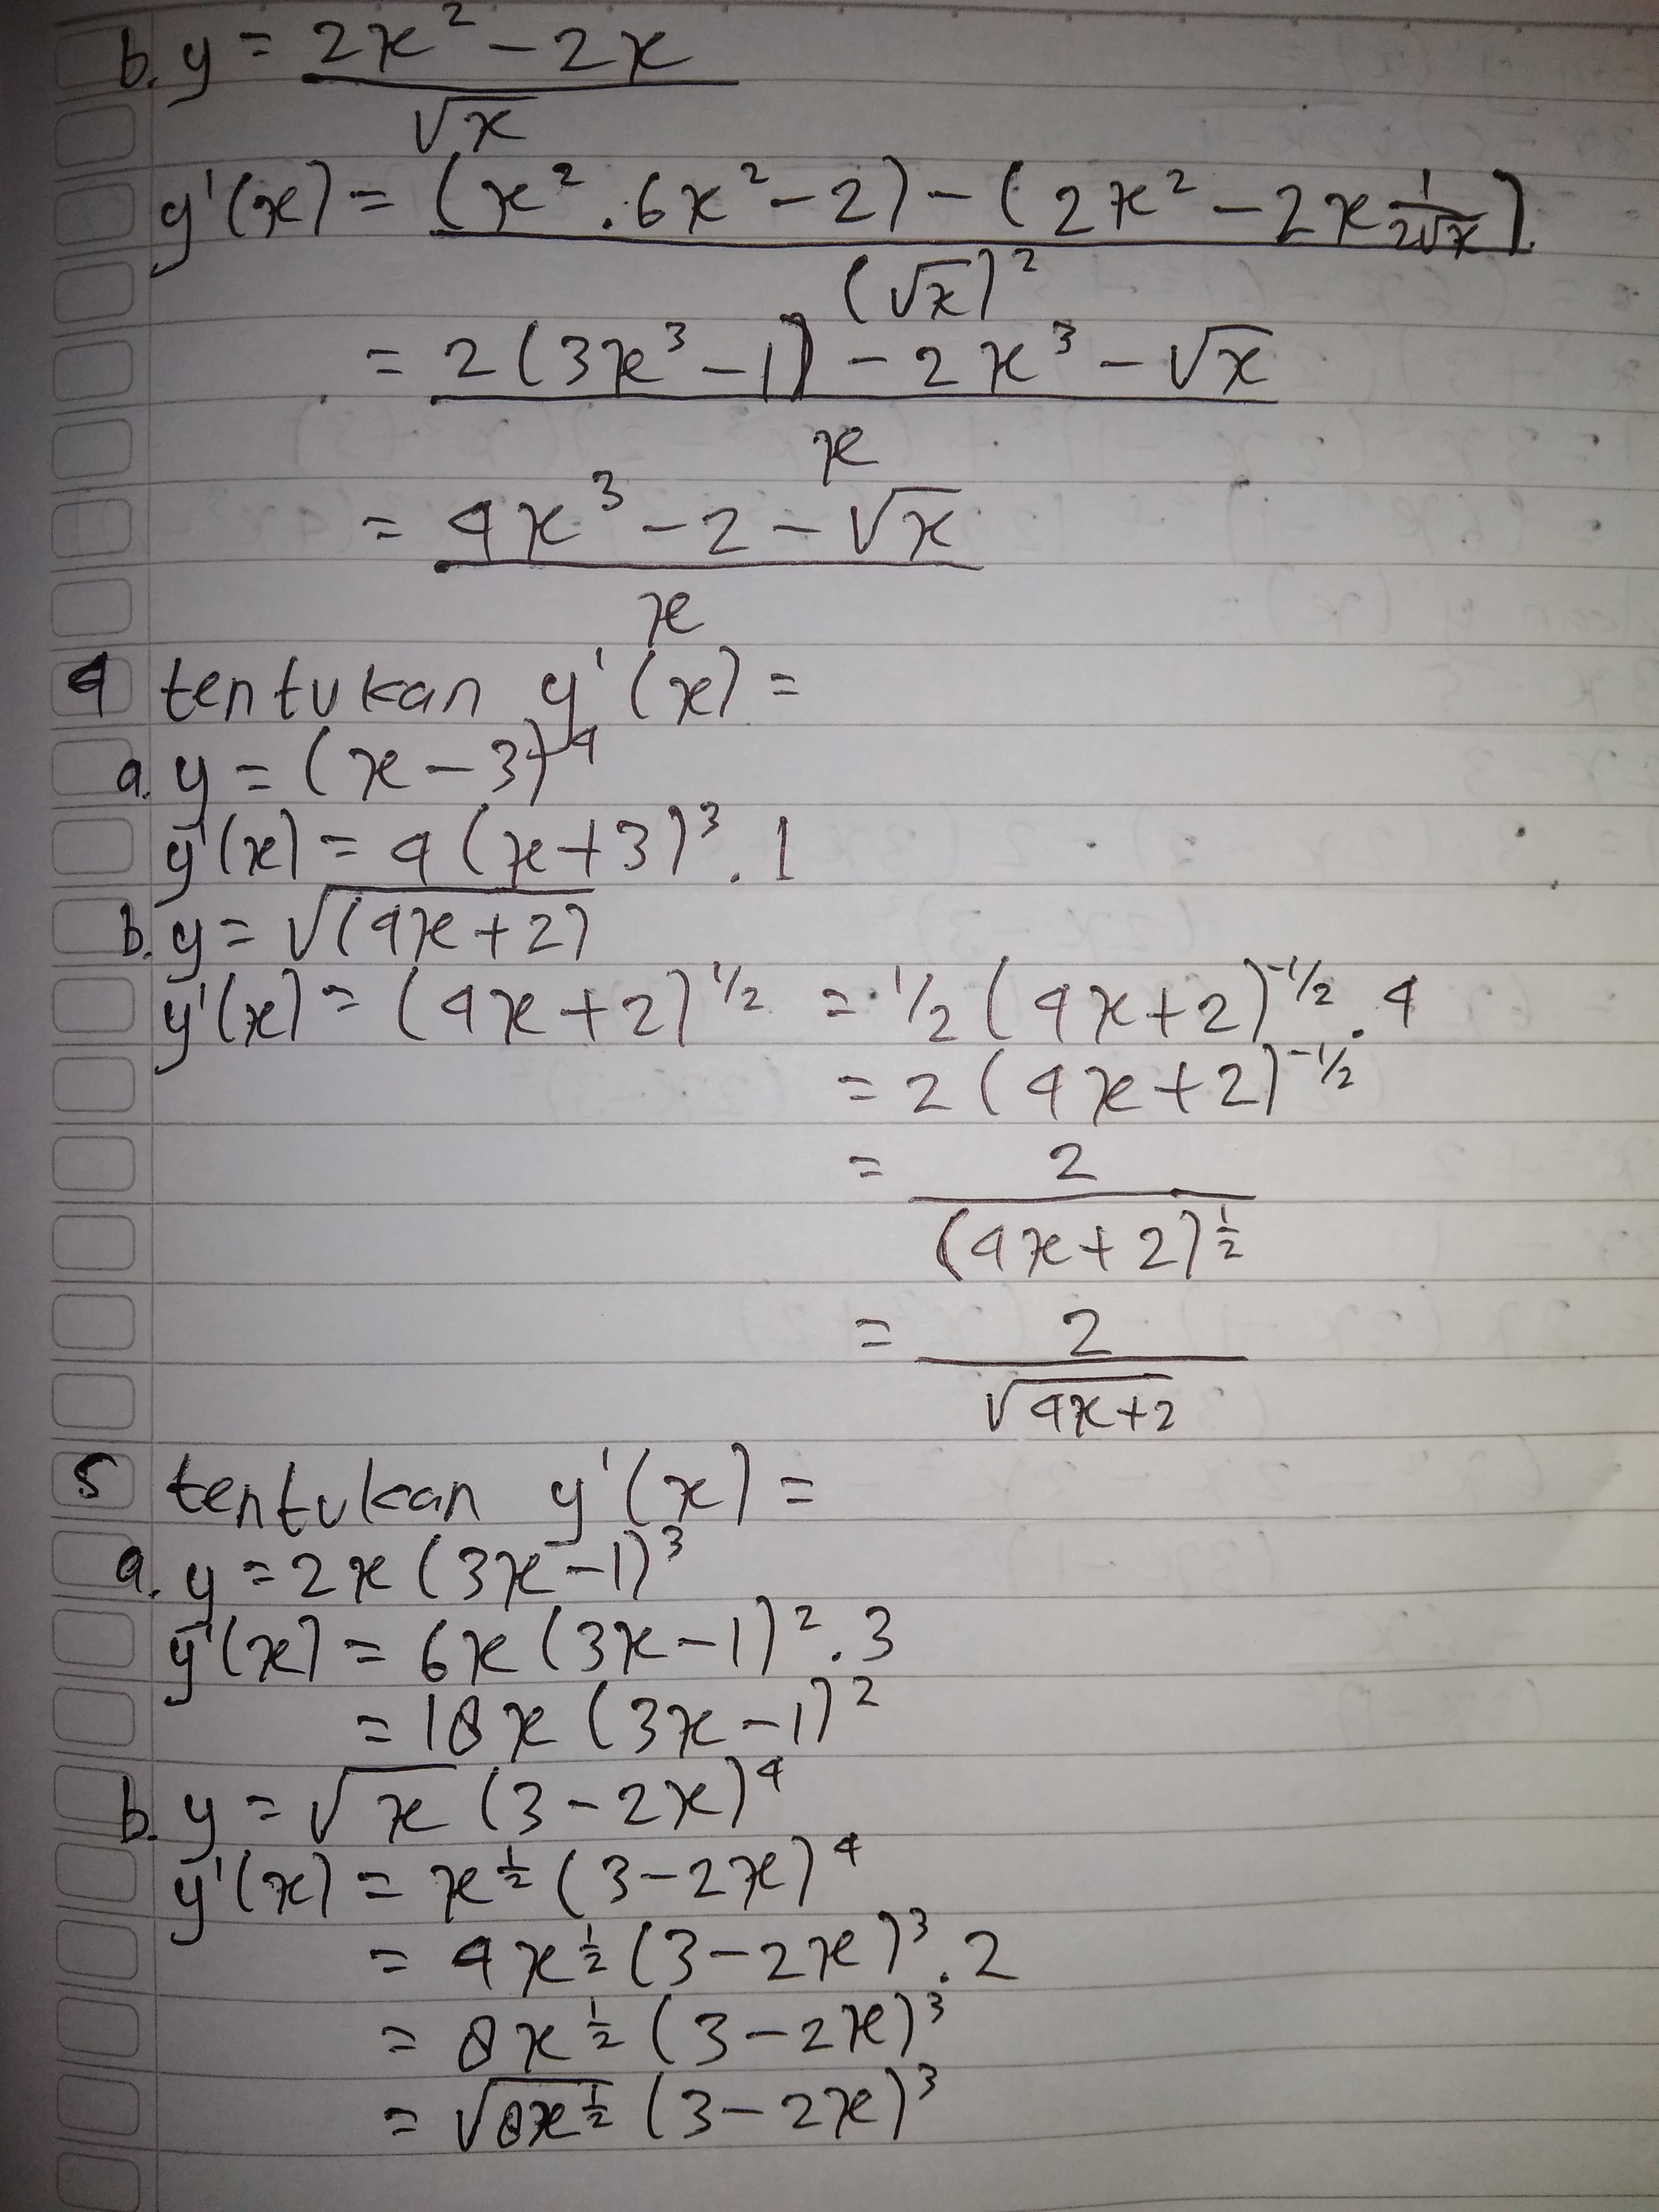 b. y = 2x² - 2x / √x
y'(x) = (x² . 6x² - 2) - (2x² - 2x 1/2√x) / (√x)²
= 2(3x³ - 1) - 2x³ - √x / x
= 4x³ - 2 - √x / x
4 tentukan y'(x) =
a. y = (x - 3)⁴
y'(x) = 4(x + 3)³ . 1
b. y = √(4x + 2)
y'(x) = (4x + 2)^1/2 = 1/2 (4x + 2)^-1/2 . 4
= 2(4x + 2)^-1/2
= 2 / (4x + 2)^1/2
= 2 / √4x+2
5 tentukan y'(x) =
a. y = 2x(3x - 1)³
y'(x) = 6x(3x - 1)² . 3
= 18x(3x - 1)²
b. y = √x (3 - 2x)⁴
y'(x) = x^1/2 (3 - 2x)⁴
= 4x^1/2 (3 - 2x)³ . 2
= 8x^1/2 (3 - 2x)³
= √8x^1/2 (3 - 2x)³